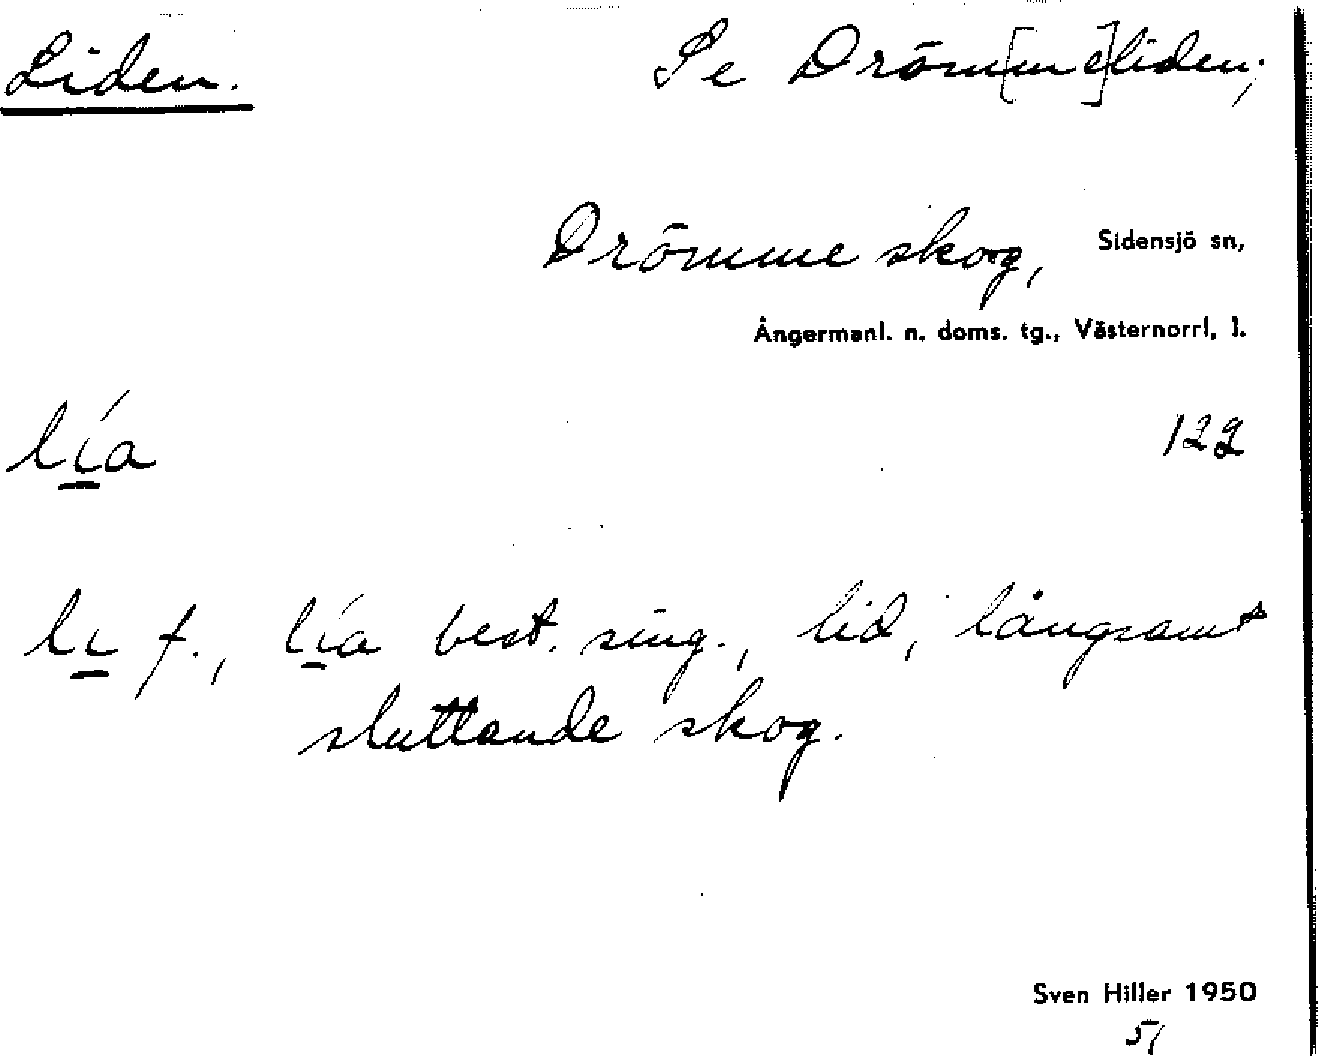 Liden. Se Dröm[me]liden;
Drömme skog, Sidensjö sn,
Ångermanl. n. doms. tg., Västernorrl. l.
lía 122
li f., lía best. sing., lid, långsamt
sluttande skog.
Sven Hiller 1950
51